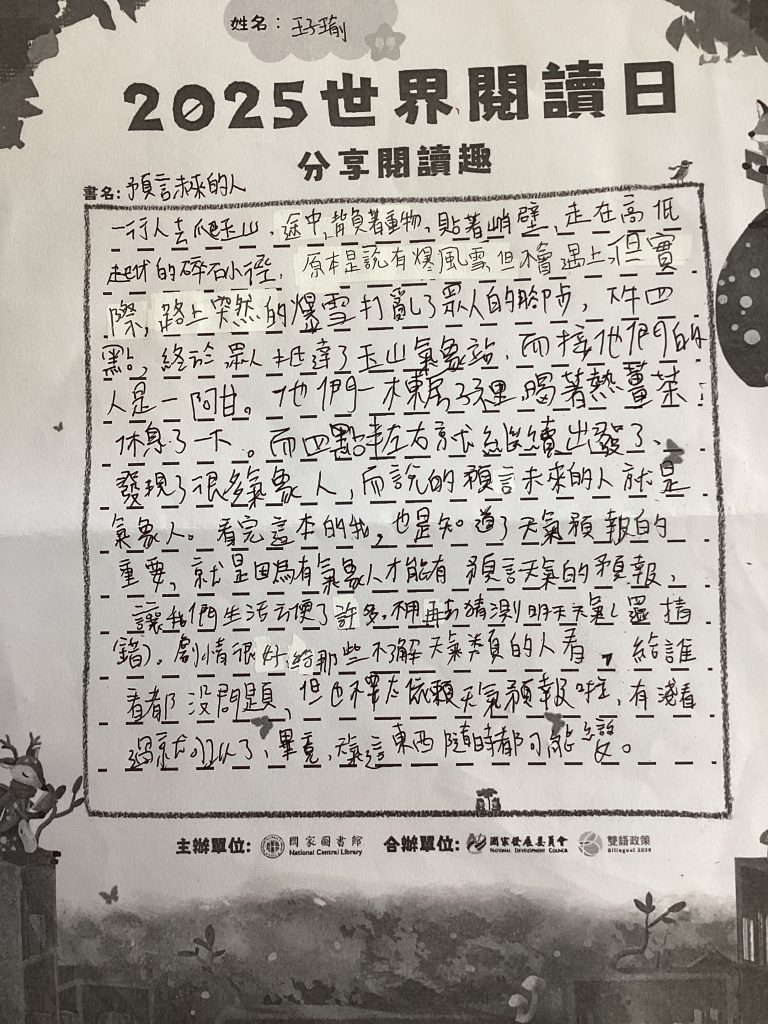 姓名：王子瑜
2025世界閱讀日
分享閱讀趣
書名：預言未來的人
一行人去爬玉山，途中，背負著重物，貼著峭壁，走在高低
起伏的碎石小徑，原本是說有爆風雪，但不會遇上，但實
際，路上突然的爆雪打亂了眾人的腳步，下午四
點，終於眾人抵達了玉山氣象站，而接他們的
人是一阿甘。他們一棟屋子裡喝著熱薑茶，
休息了一下。而四點半左右就繼續出發了、
發現了很多氣象人，而說的預言未來的人就是
氣象人。看完這本的我，也是知道了天氣預報的
重要，就是因為有氣象人才能有預言天氣的預報，
讓我們生活方便了許多。不用再去猜測明天天氣(還猜
錯)。劇情很好，給那些不了解天氣類的人看，給誰
看都沒問題，但也禪太依賴天氣預報啦，有淺看
過就可以了，畢竟，天氣這東西隨時都可能變。
主辦單位：國家圖書館 National Central Library 合辦單位：國家發展委員會 NATIONAL DEVELOPMENT COUNCIL 雙語政策 Bilingual 2030